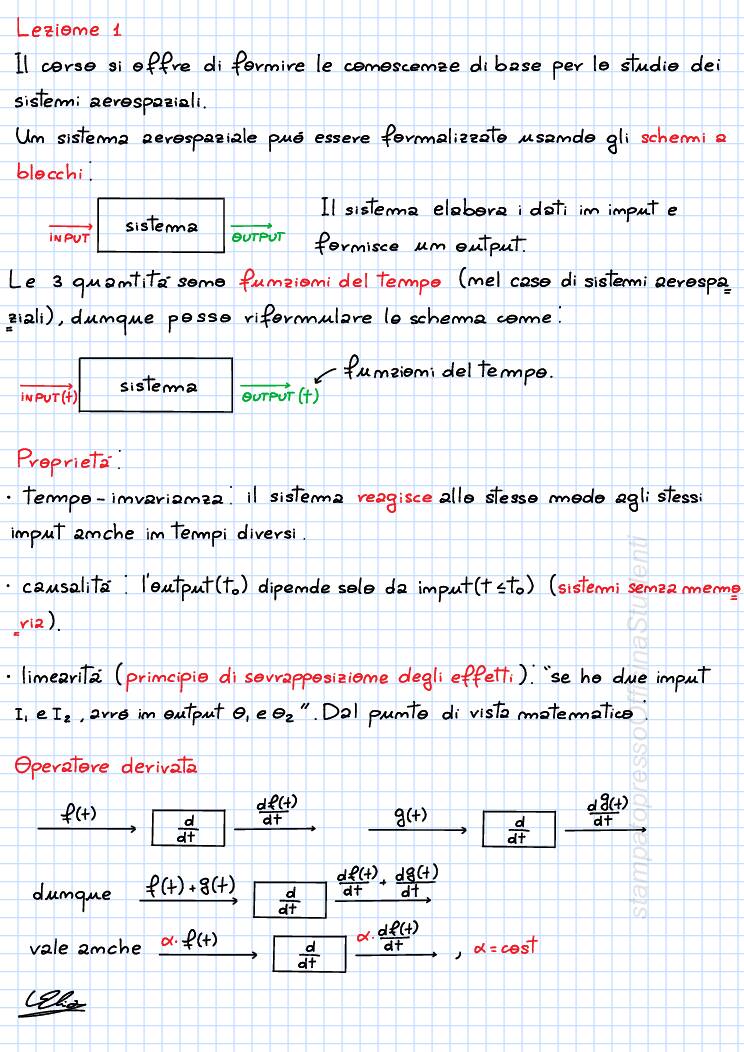 Lezione 1
Il corso si offre di fornire le conoscenze di base per lo studio dei
sistemi aerospaziali.
Un sistema aerospaziale può essere formalizzato usando gli schemi a
blocchi:
INPUT sistema OUTPUT
Il sistema elabora i dati in input e
fornisce un output.
Le 3 quantità sono funzioni del tempo (nel caso di sistemi aerospa
ziali), dunque posso riformulare lo schema come:
INPUT(t) sistema OUTPUT(t)
funzioni del tempo.
Proprietà:
· tempo-invarianza: il sistema reagisce allo stesso modo agli stessi
input anche in tempi diversi.
· causalità: l'output(t₀) dipende solo da input(t≤t₀) (sistemi senza memo
ria).
· linearità (principio di sovrapposizione degli effetti): "se ho due input
I₁ e I₂, avrò in output O₁ e O₂". Dal punto di vista matematico:
Operatore derivata
f(t) d/dt df(t)/dt g(t) d/dt dg(t)/dt
dunque f(t)+g(t) d/dt df(t)/dt + dg(t)/dt
vale anche α·f(t) d/dt α·df(t)/dt , α=cost
Elia
stampatopressoOfficinaStudenti